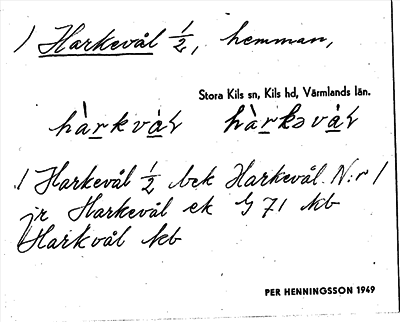 1 Harkevål 1/2, hemman,
Stora Kils sn, Kils hd, Värmlands län.
hàrkvàɫ hàrkəvàɫ
1 Harkevål 1/2 bek Harkevål N:r 1
jr Harkevål ek G 71 kb
Harkvål kb
PER HENNINGSSON 1949